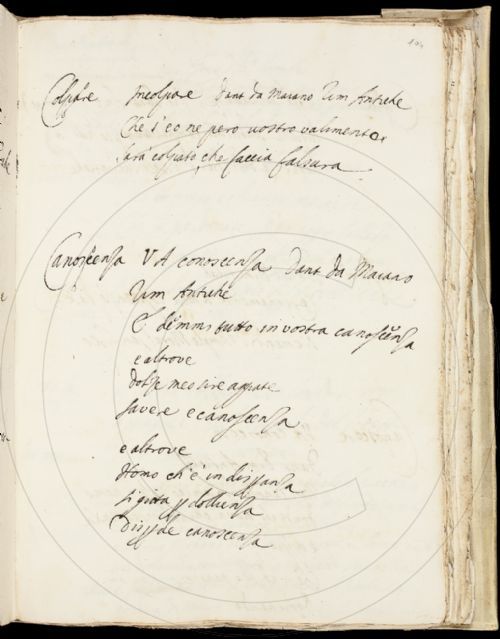 194
Colpare Incolpare Dant da Maiano Rim Antiche
Che s'eo ne pero vostro valimento
Sarà colpato, che faccia falsura
Canoscenza VA conoscenza Dant da Maiano
Rim Antiche
E demmi tutto in vostra canoscenza
e altrove
dolze meo sire agrate
savere e canoscenza
e altrove
Homo ch'è in
si gitta p dollienza
canoscenza